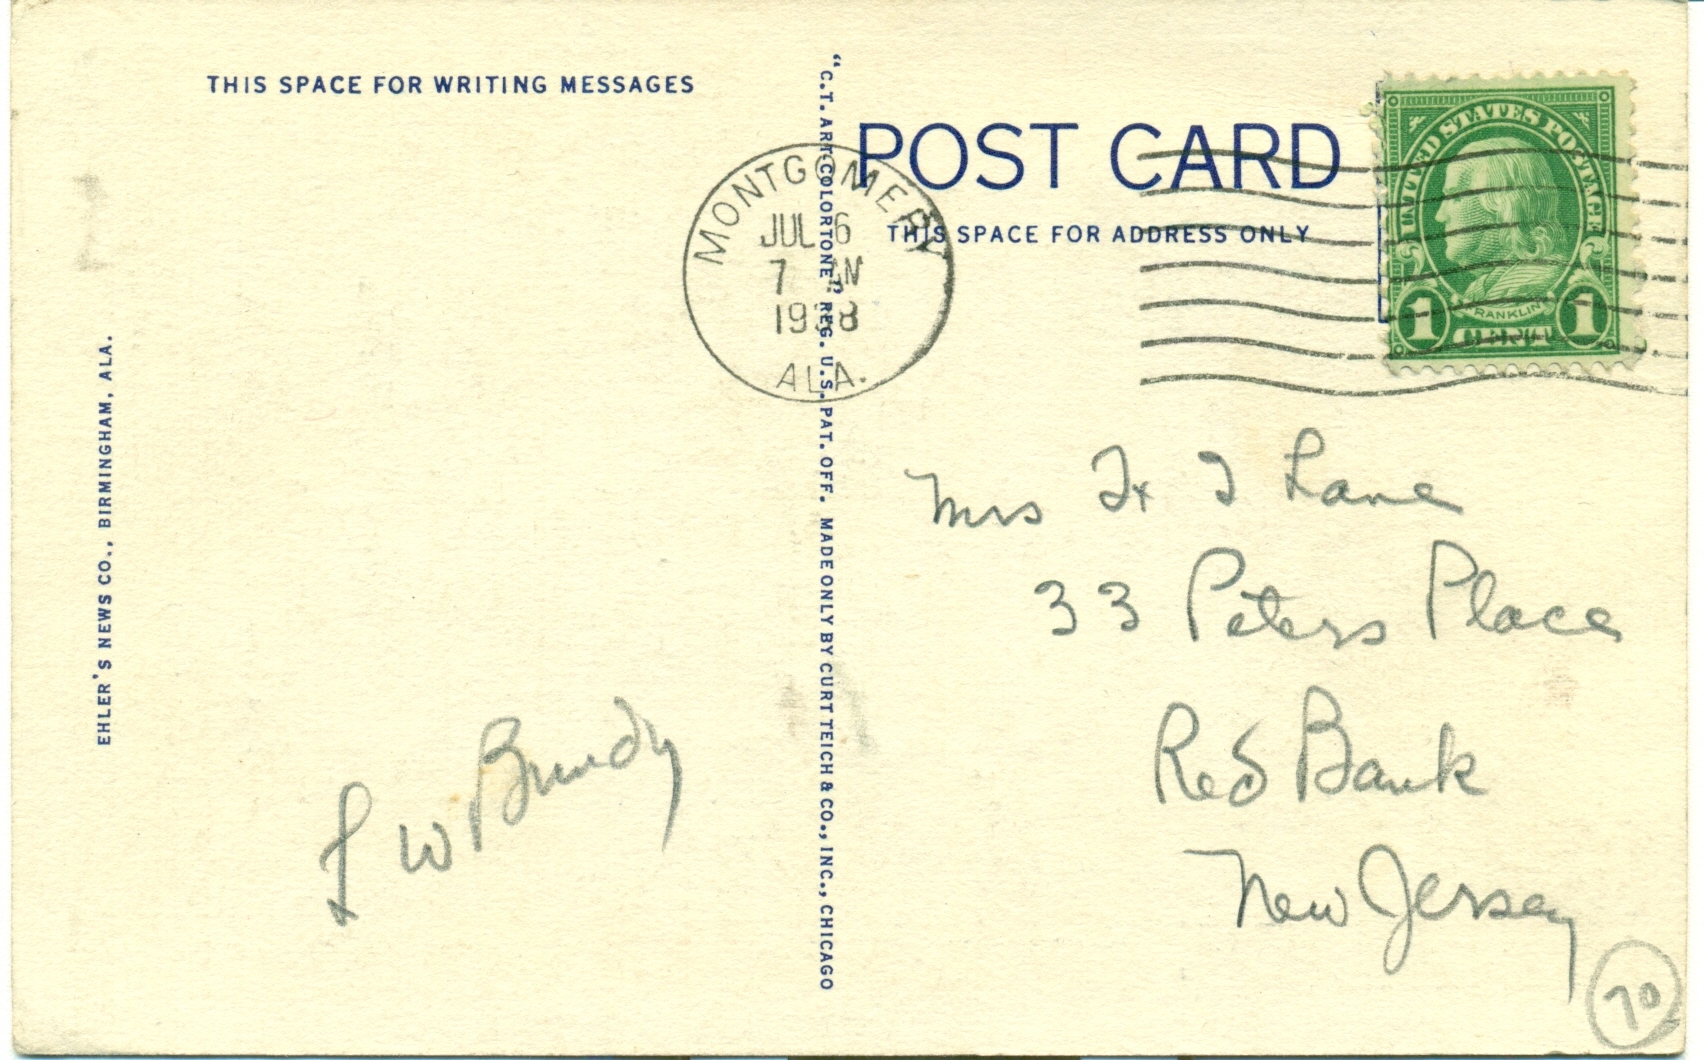 THIS SPACE FOR WRITING MESSAGES
EHLER'S NEWS CO., BIRMINGHAM, ALA.
L W Bundy
"C.T. ART-COLORTONE" REG. U.S. PAT. OFF. MADE ONLY BY CURT TEICH & CO., INC., CHICAGO
POST CARD
THIS SPACE FOR ADDRESS ONLY
MONTGOMERY
JUL 6
7 AM
1938
ALA.
UNITED STATES POSTAGE
FRANKLIN
1 1
Mrs I Lane
33 Peters Place
Red Bank
New Jersey
70